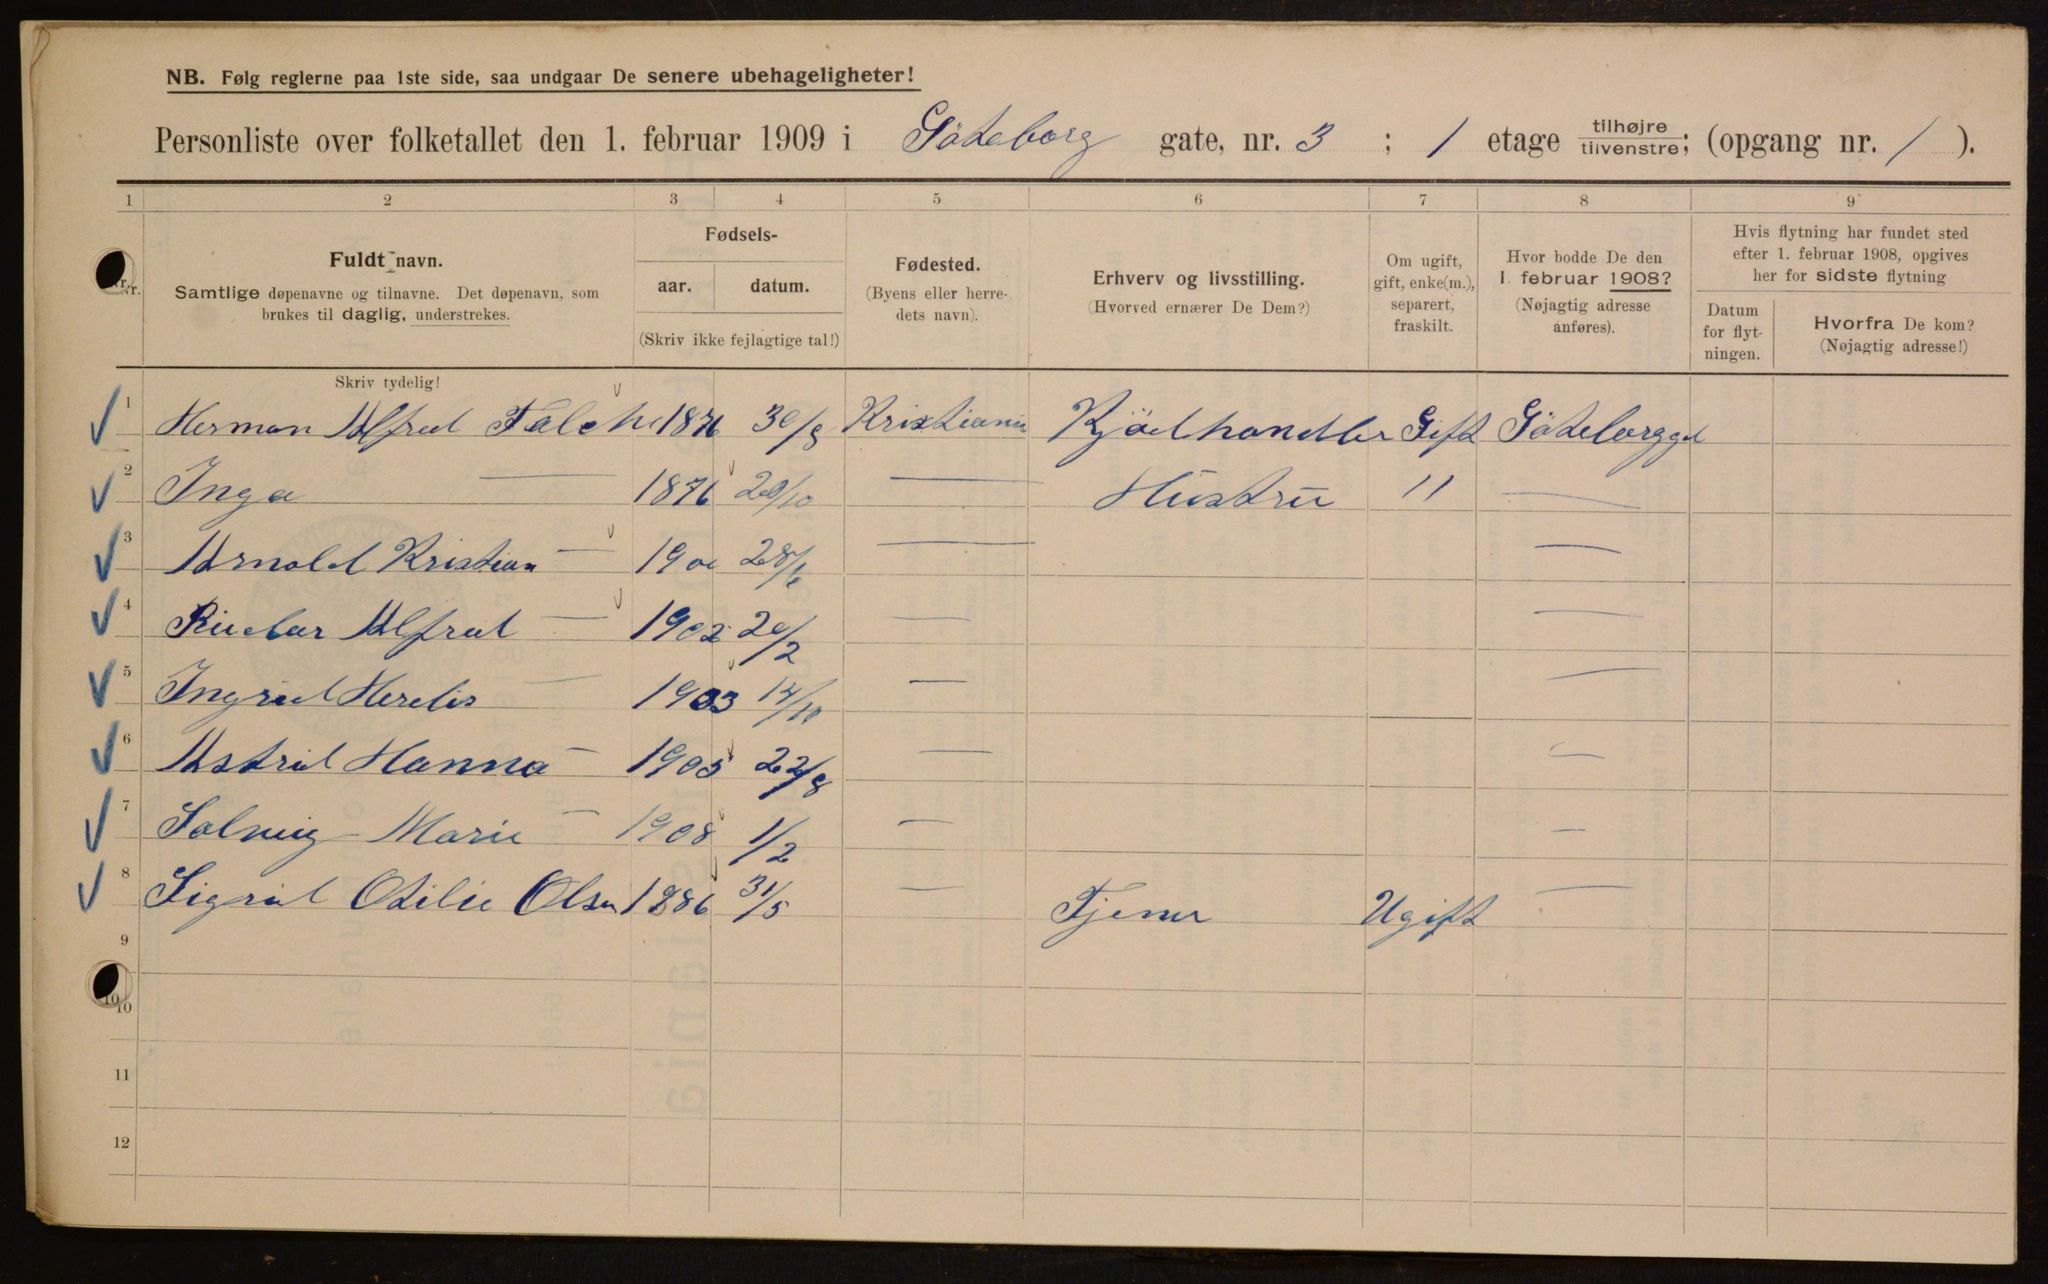 NB. Følg reglerne paa 1ste side, saa undgaar De senere ubehageligheter!
Personliste over folketallet den 1. februar 1909 i Göteborg gate, nr. 3 ; 1 etage tilhøjre tilvenstre; (opgang nr. 1 ).
1 2 3 4 5 6 7 8 9
Nr.
Fuldt navn.
Samtlige døpenavne og tilnavne. Det døpenavn, som
brukes til daglig, understrekes.
Skriv tydelig!
Fødsels-
aar. datum.
(Skriv ikke fejlagtige tal!)
Fødested.
(Byens eller herre-
dets navn).
Erhverv og livsstilling.
(Hvorved ernærer De Dem?)
Om ugift,
gift, enke(m.),
separert,
fraskilt.
Hvor bodde De den
1. februar 1908?
(Nøjagtig adresse
anføres).
Hvis flytning har fundet sted
efter 1. februar 1908, opgives
her for sidste flytning
Datum
for flyt-
ningen.
Hvorfra De kom?
(Nøjagtig adresse!)
1 Herman Alfred Falch 1876 30/8 Kristiania Kjödhandler Gift Göteborggd
2 Inga — 1876 20/10 — Hustru 11 —
3 Arnold Kristian — 1900 28/6 — —
4 Alfred — 1902 20/2 — —
5 Ingrid — 1903 — —
6 Astrid Hanna — 1905 22/8 — —
7 Solveig Marie — 1908 1/2 — —
8 Sigrid Otilie Olsen 1886 31/5 — Tjener Ugift —
9
10
11
12